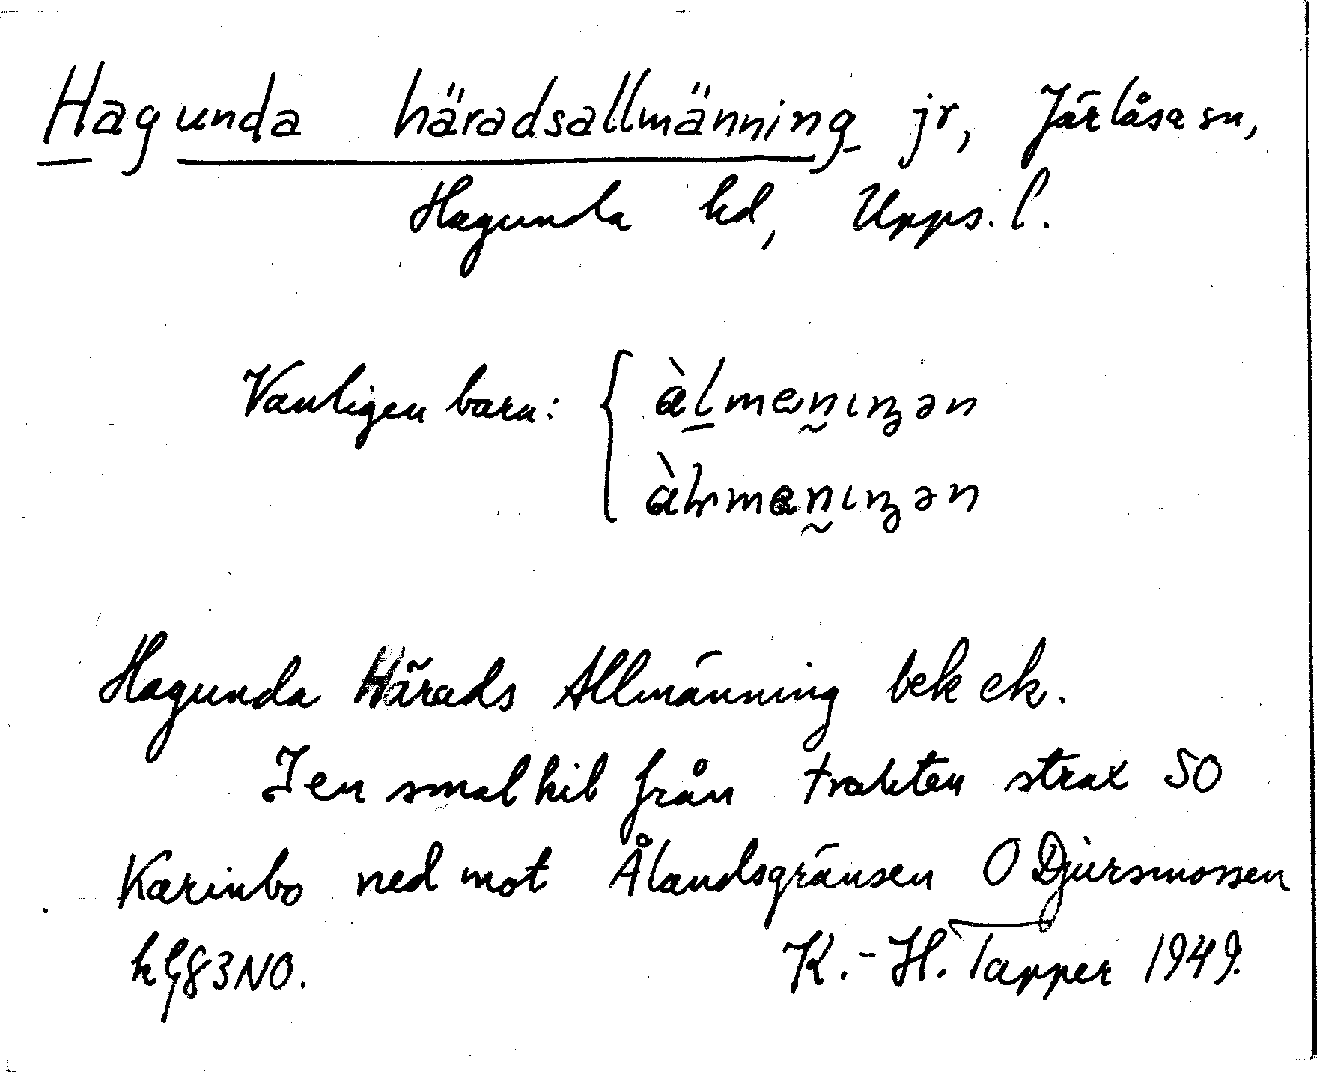 Hagunda häradsallmänning jr, Järlåsa sn,
Hagunda hd, Upps. l.
Vanligen bara:
àlmenıŋən
àlrmenıŋən
Hagunda Härads Allmänning bek ek.
I en smal kil från trakten strax SO
Karinbo ned mot Ålandsgränsen O Djursmossen
83NO. K.-H. Tapper 1949.